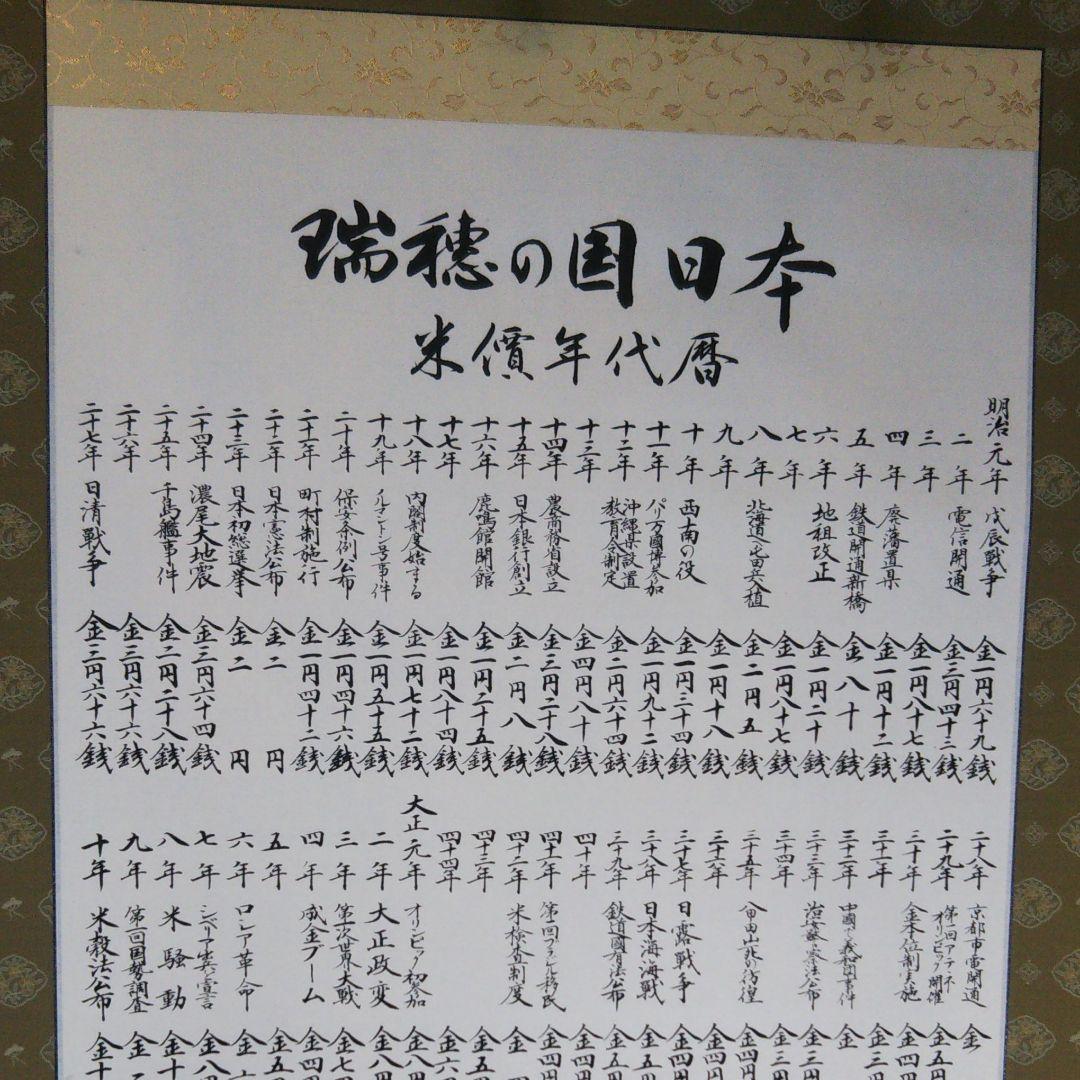 瑞穂の国日本
米價年代暦
明治元年 戊辰戦争 金一円六十九銭
二年 電信開通 金三円四十三銭
三年 金一円八十七銭
四年 廃藩置県 金一円十二銭
五年 鉄道開通新橋 金八十銭
六年 地租改正 金一円二十銭
七年 金一円八十七銭
八年 北海道へ屯田兵植 金二円五銭
九年 金一円十八銭
十年 西南の役 金一円三十四銭
十一年 パリ万國博参加 金一円九十二銭
十二年 沖縄県設置 教育令制定 金二円六十四銭
十三年 金四円八十銭
十四年 農商務省設立 金三円二十八銭
十五年 日本銀行創立 金二円八銭
十六年 鹿鳴館開館 金一円二十五銭
十七年 金一円八十四銭
十八年 内閣制度始まる 金一円七十二銭
十九年 ノルマントン号事件 金一円五十五銭
二十年 保安条例公布 金一円四十六銭
二十一年 町村制施行 金一円四十二銭
二十二年 日本憲法公布 金二円
二十三年 日本初総選挙 金二円
二十四年 濃尾大地震 金三円六十四銭
二十五年 千島艦事件 金二円二十八銭
二十六年 金三円六十六銭
二十七年 日清戦争 金三円六十六銭
二十八年 京都市電開通 金
二十九年 第一回アテネオリンピック開催 金五円
三十年 金本位制実施 金四円
三十一年 金三円
三十二年 中國で義和団事件 金
三十三年 治安警察法公布 金三円
三十四年 金三
三十五年 八甲田山死の彷徨 金四円
三十六年 金四円
三十七年 日露戦争 金四円
三十八年 日本海海戦 金五
三十九年 鉄道國有法公布 金五
四十年 金四円
四十一年 第一回ブラジル移民 金四円
四十二年 米検査制度 金
四十三年 金五
四十四年 金六
大正元年 オリンピック初参加 金八
二年 大正政変 金八円
三年 第一次世界大戦 金七
四年 成金ブーム 金四
五年 金五
六年 ロシア革命 金
七年 シベリア出兵宣言 金八
八年 米騒動 金十
九年 第一回国勢調査 金
十年 米穀法公布 金十